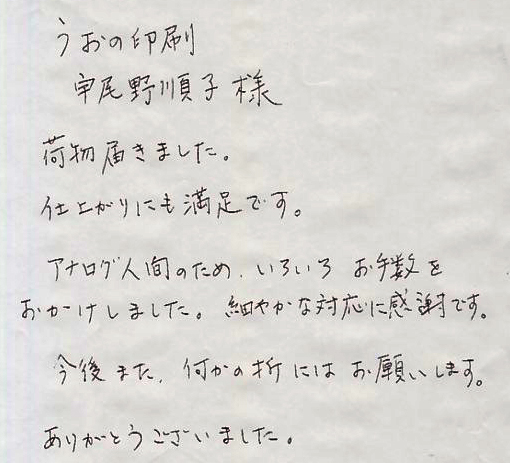 うおの印刷
宇尾野順子様
荷物届きました。
仕上がりにも満足です。
アナログ人間のため、いろいろ お手数を
おかけしました。細やかな対応に感謝です。
今後また、何かの折にはお願いします。
ありがとうございました。